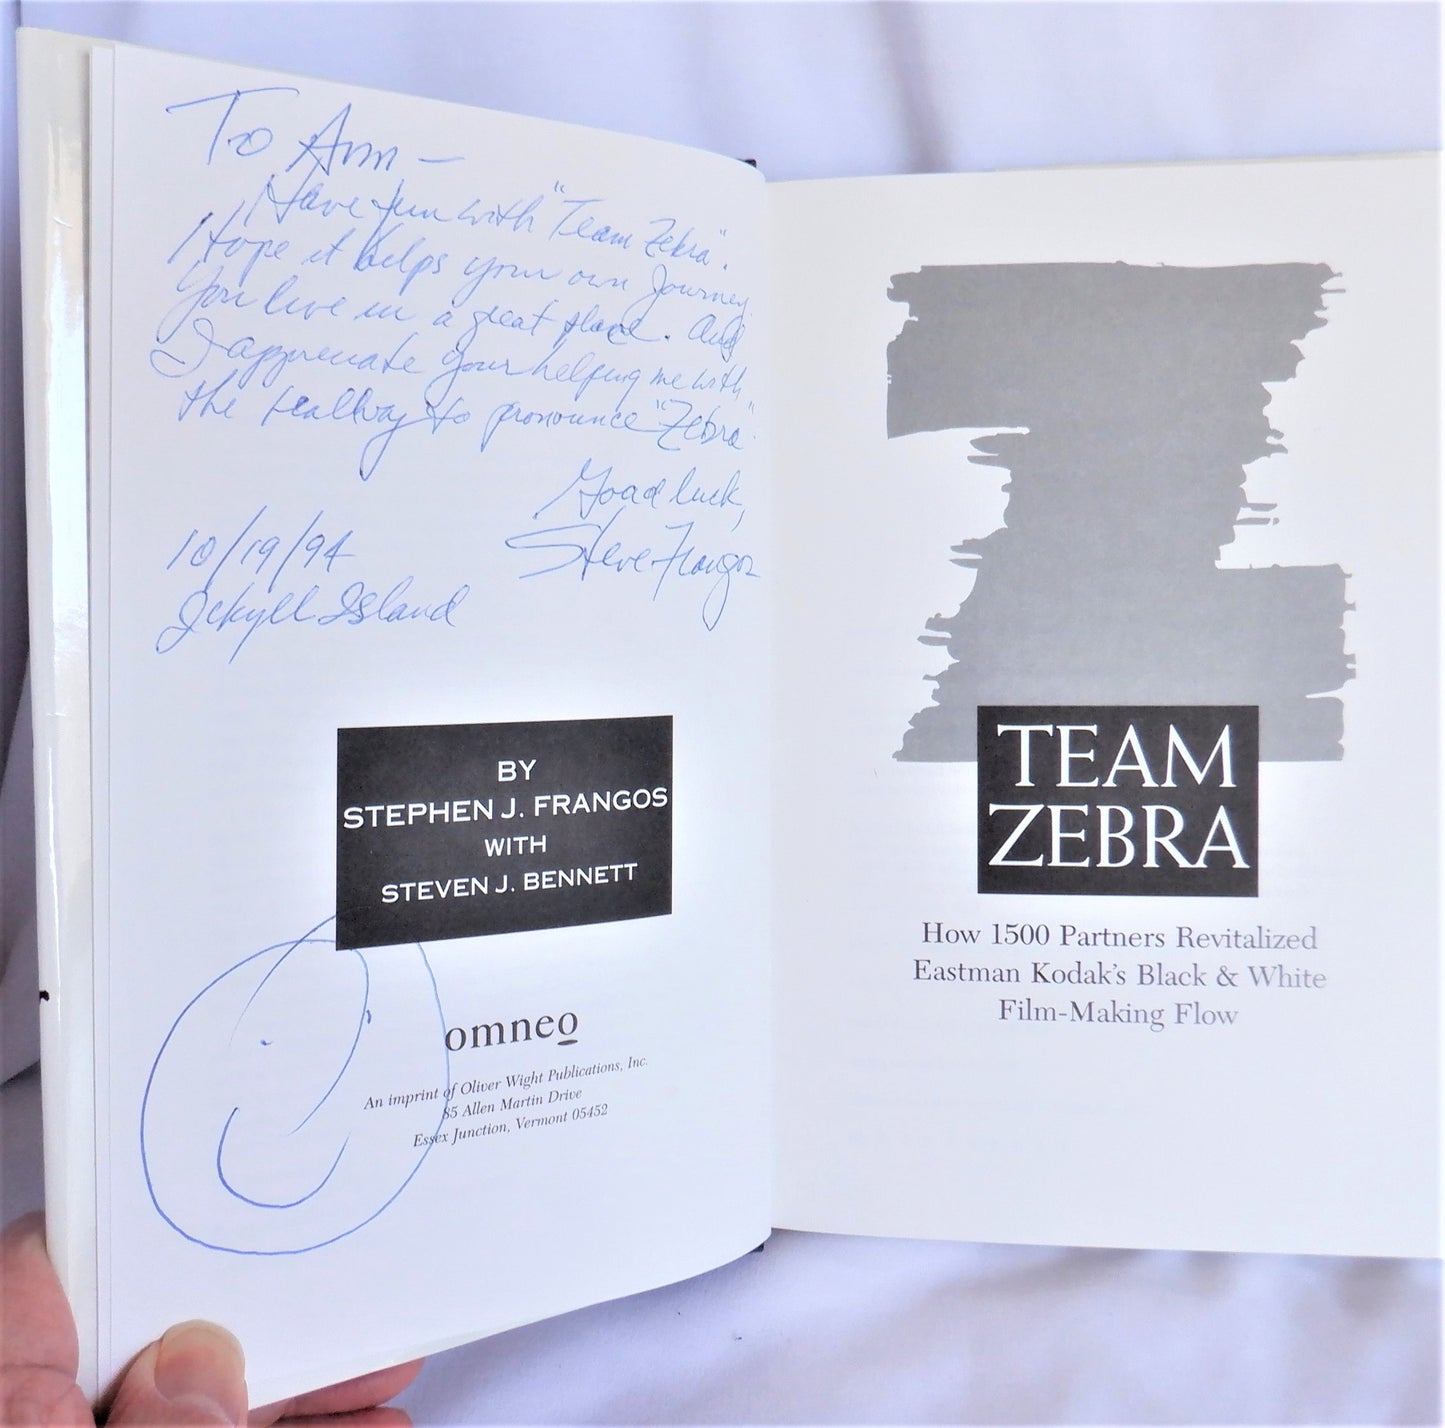 To Ann —
Have fun with "Team Zebra".
Hope it helps your own Journey.
You live in a great place. And
I appreciate your helping me with
the real way to pronounce "Zebra".
Good luck,
Steve Frangos
10/19/94
Jekyll Island
BY
STEPHEN J. FRANGOS
WITH
STEVEN J. BENNETT
omneo
An imprint of Oliver Wight Publications, Inc.
85 Allen Martin Drive
Essex Junction, Vermont 05452
TEAM
ZEBRA
How 1500 Partners Revitalized
Eastman Kodak's Black & White
Film-Making Flow